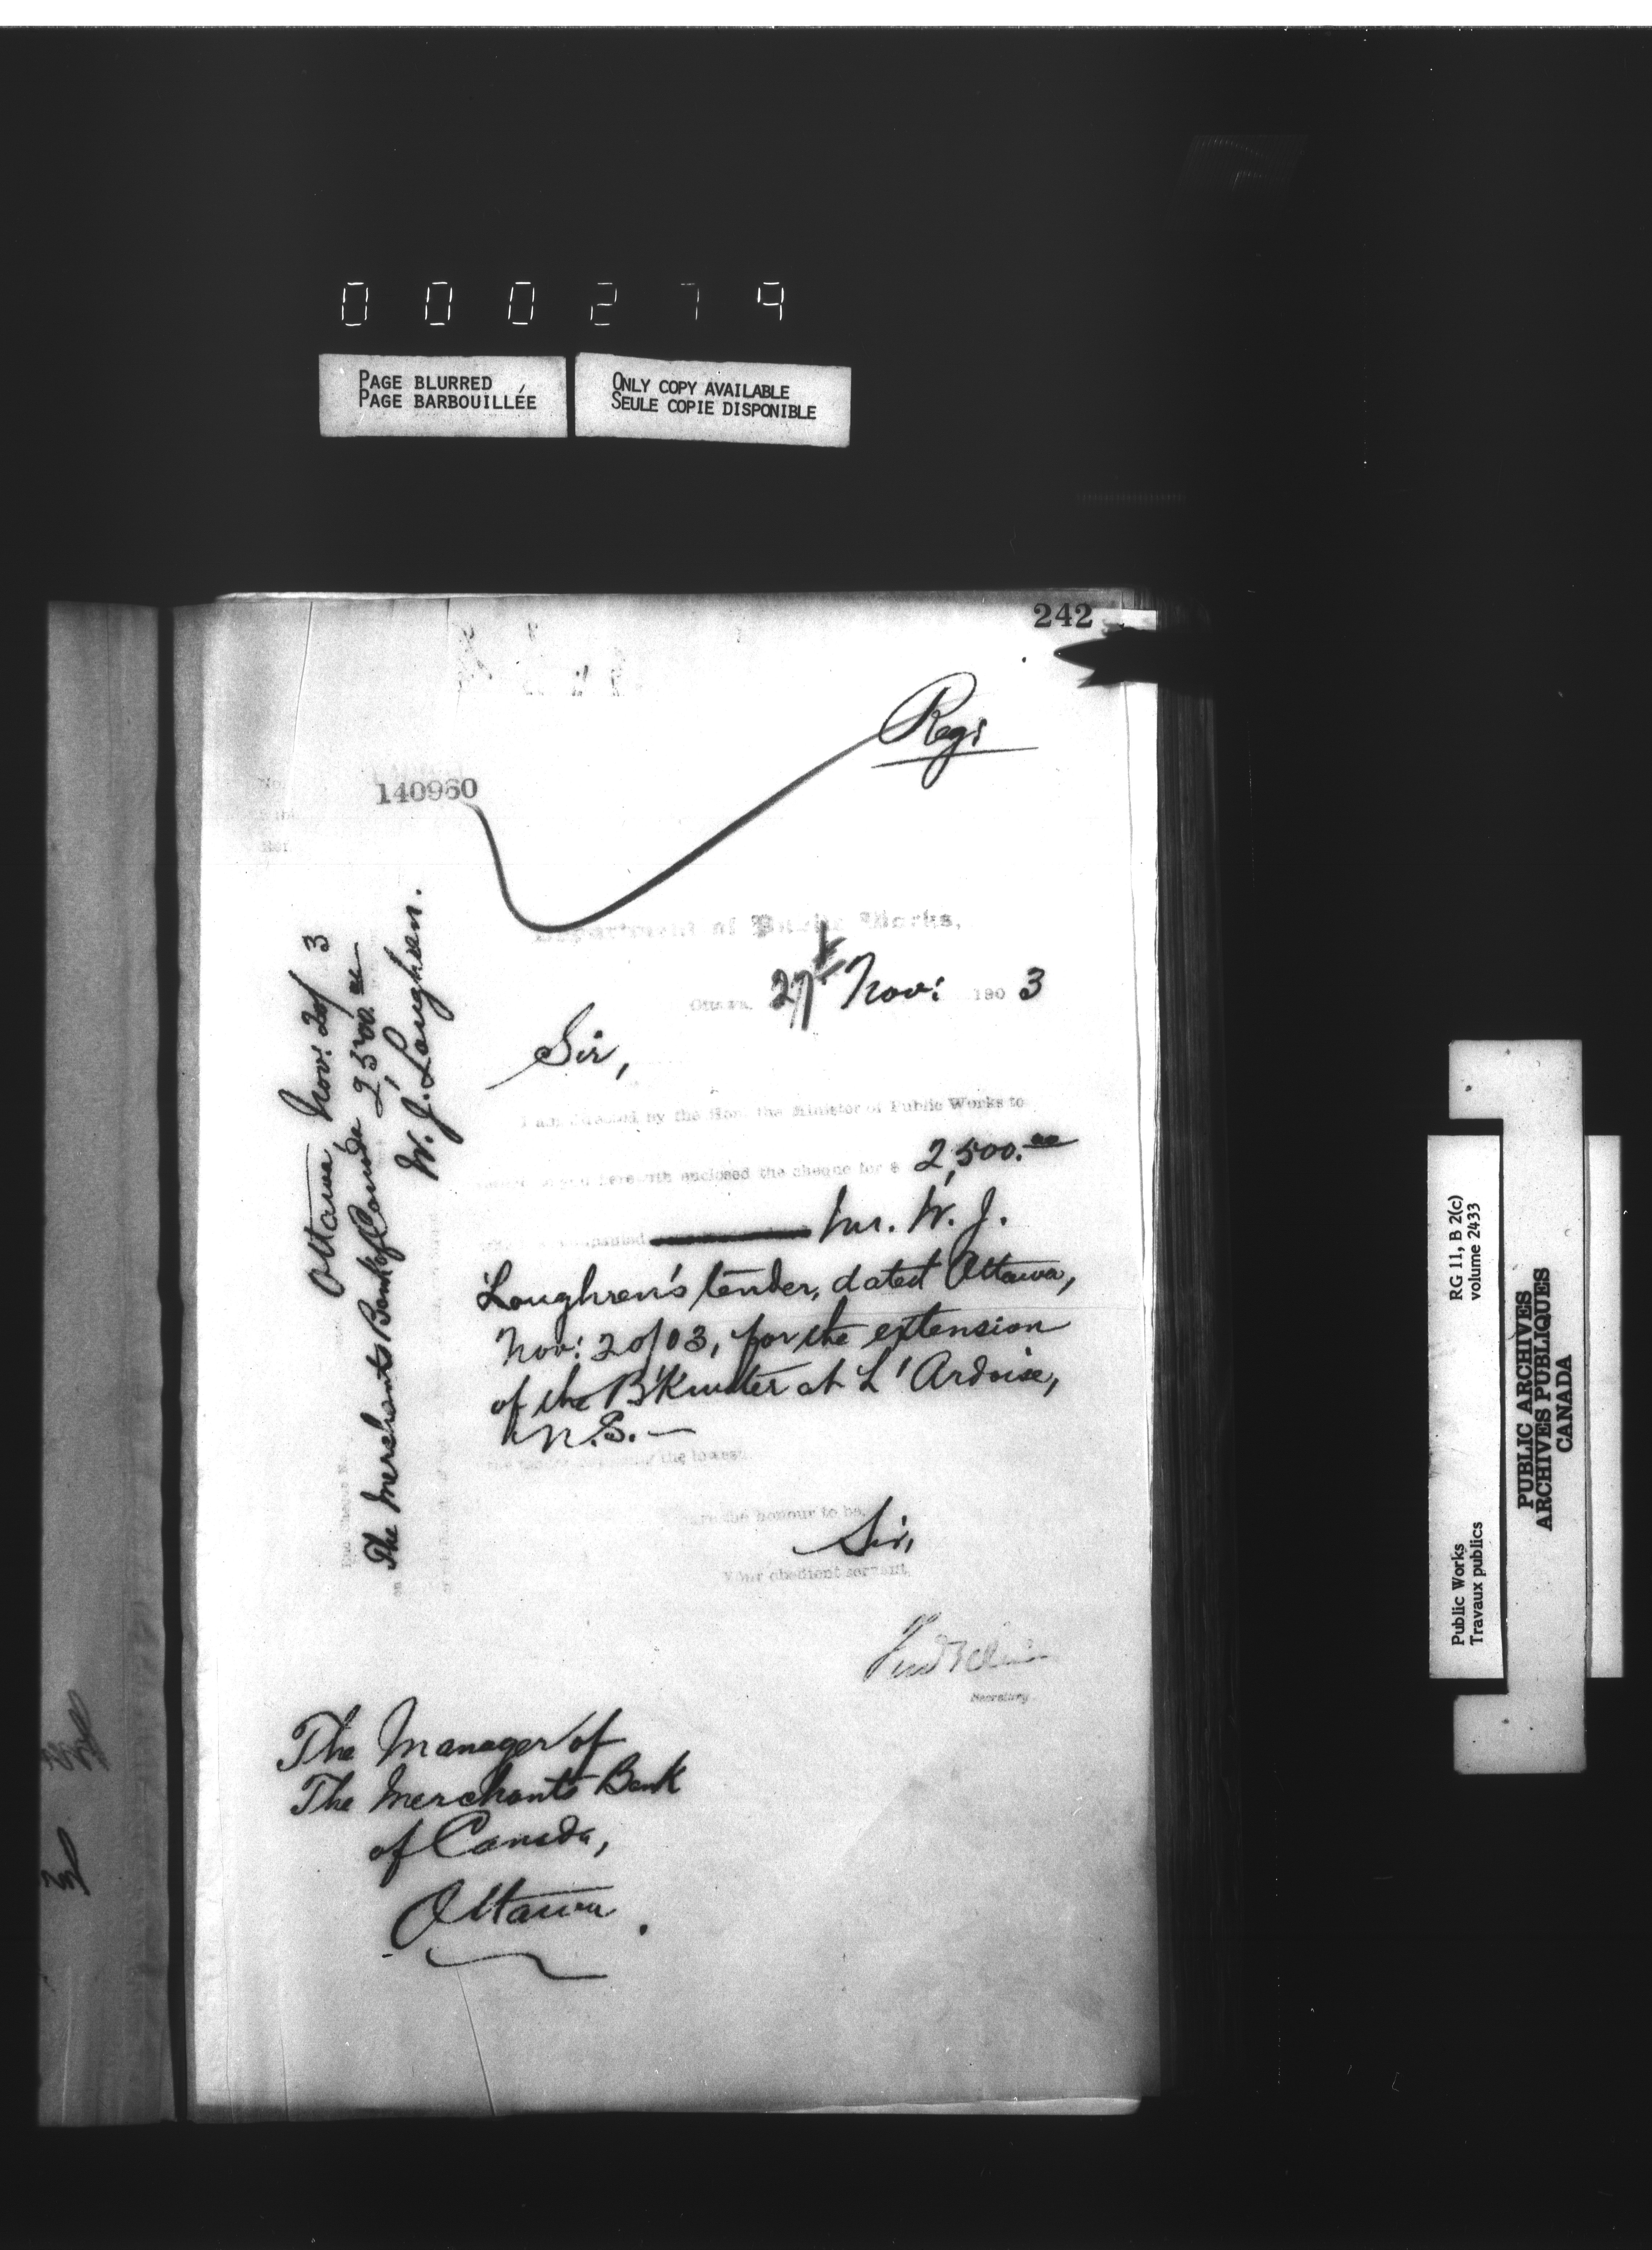 000279
PAGE BLURRED
PAGE BARBOUILLÉE
ONLY COPY AVAILABLE
SEULE COPIE DISPONIBLE
242
Regs
140960
Department of Public Works,
Ottawa, 27th Nov: 1903
Sir,
I am directed by the Hon. the Minister of Public Works to
you herewith enclosed the cheque for $ 2,500.00
Mr. W. J.
Loughren's tender, dated Ottawa,
Nov: 20/03, for the extension
of the B'Kwater at L'Ardoise,
N.S. —
the lowest.
the honour to be,
Sir,
Your obedient servant,
Secretary
The Manager of
The Merchants Bank
of Canada,
Ottawa.
Ottawa Nov: 20/ 3
The Merchants Bank of Canada 2,500.00
W. J. Loughren.
Public Works
Travaux publics
RG 11, B 2(c)
volume 2433
PUBLIC ARCHIVES
ARCHIVES PUBLIQUES
CANADA